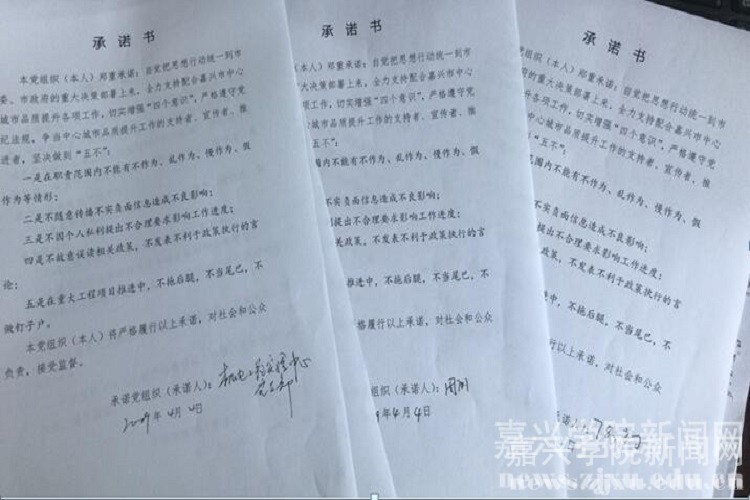 承诺书
本党组织（本人）郑重承诺：自觉把思想行动统一到市
委、市政府的重大决策部署上来，全力支持配合嘉兴市中心
城市品质提升各项工作，切实增强“四个意识”，严格遵守党
纪法规。争当中心城市品质提升工作的支持者、宣传者、推
进者，坚决做到“五不”：
一是在职责范围内不能有不作为、乱作为、慢作为、假
作为等情形；
二是不随意转播不实负面信息造成不良影响；
三是不因个人私利提出不合理要求影响工作进度；
四是不故意误读相关政策，不发表不利于政策执行的言
论；
五是在重大工程项目推进中，不拖后腿，不当尾巴，不
做钉子户。
本党组织（本人）将严格履行以上承诺，对社会和公众
负责，接受监督。
承诺党组织（承诺人）：
2019年4月4日
承诺书
（本人）郑重承诺：自觉把思想行动统一到市
大决策部署上来，全力支持配合嘉兴市中心
工作，切实增强“四个意识”，严格遵守党
中心城市品质提升工作的支持者、宣传者、推
“五不”：
围内不能有不作为、乱作为、慢作为、假
不实负面信息造成不良影响；
提出不合理要求影响工作进度；
关政策，不发表不利于政策执行的言
推进中，不拖后腿，不当尾巴，不
格履行以上承诺，对社会和公众
（承诺人）：周刚
9年4月4日
承诺书
（本人）郑重承诺：自觉把思想行动统一到市
大决策部署上来，全力支持配合嘉兴市中心
各项工作，切实增强“四个意识”，严格遵守党
中心城市品质提升工作的支持者、宣传者、推
“五不”：
范围内不能有不作为、乱作为、慢作为、假
不实负面信息造成不良影响；
提出不合理要求影响工作进度；
政策，不发表不利于政策执行的言
推进中，不拖后腿，不当尾巴，不
行以上承诺，对社会和公众
承诺人
嘉兴学院新闻网
news.zjxu.edu.cn